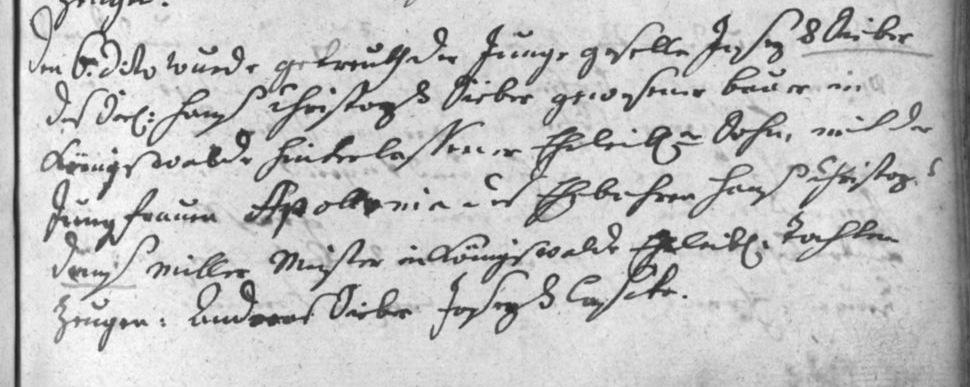 Zeugen.
den 6. dito wurde getreuth der Junge geselle Joseph Sieber
des Seel: Hanß Christoph Sieber gewesener bauer in
Königswalde hinterlassener Eheleibl: Sohn, mit der
Jungfrauen Apollonia des Ehrbahren Hanß Christoph
miller Meister in Königswalde Eheleibl. Tochter
Zeugen: Andreas Sieber Joseph